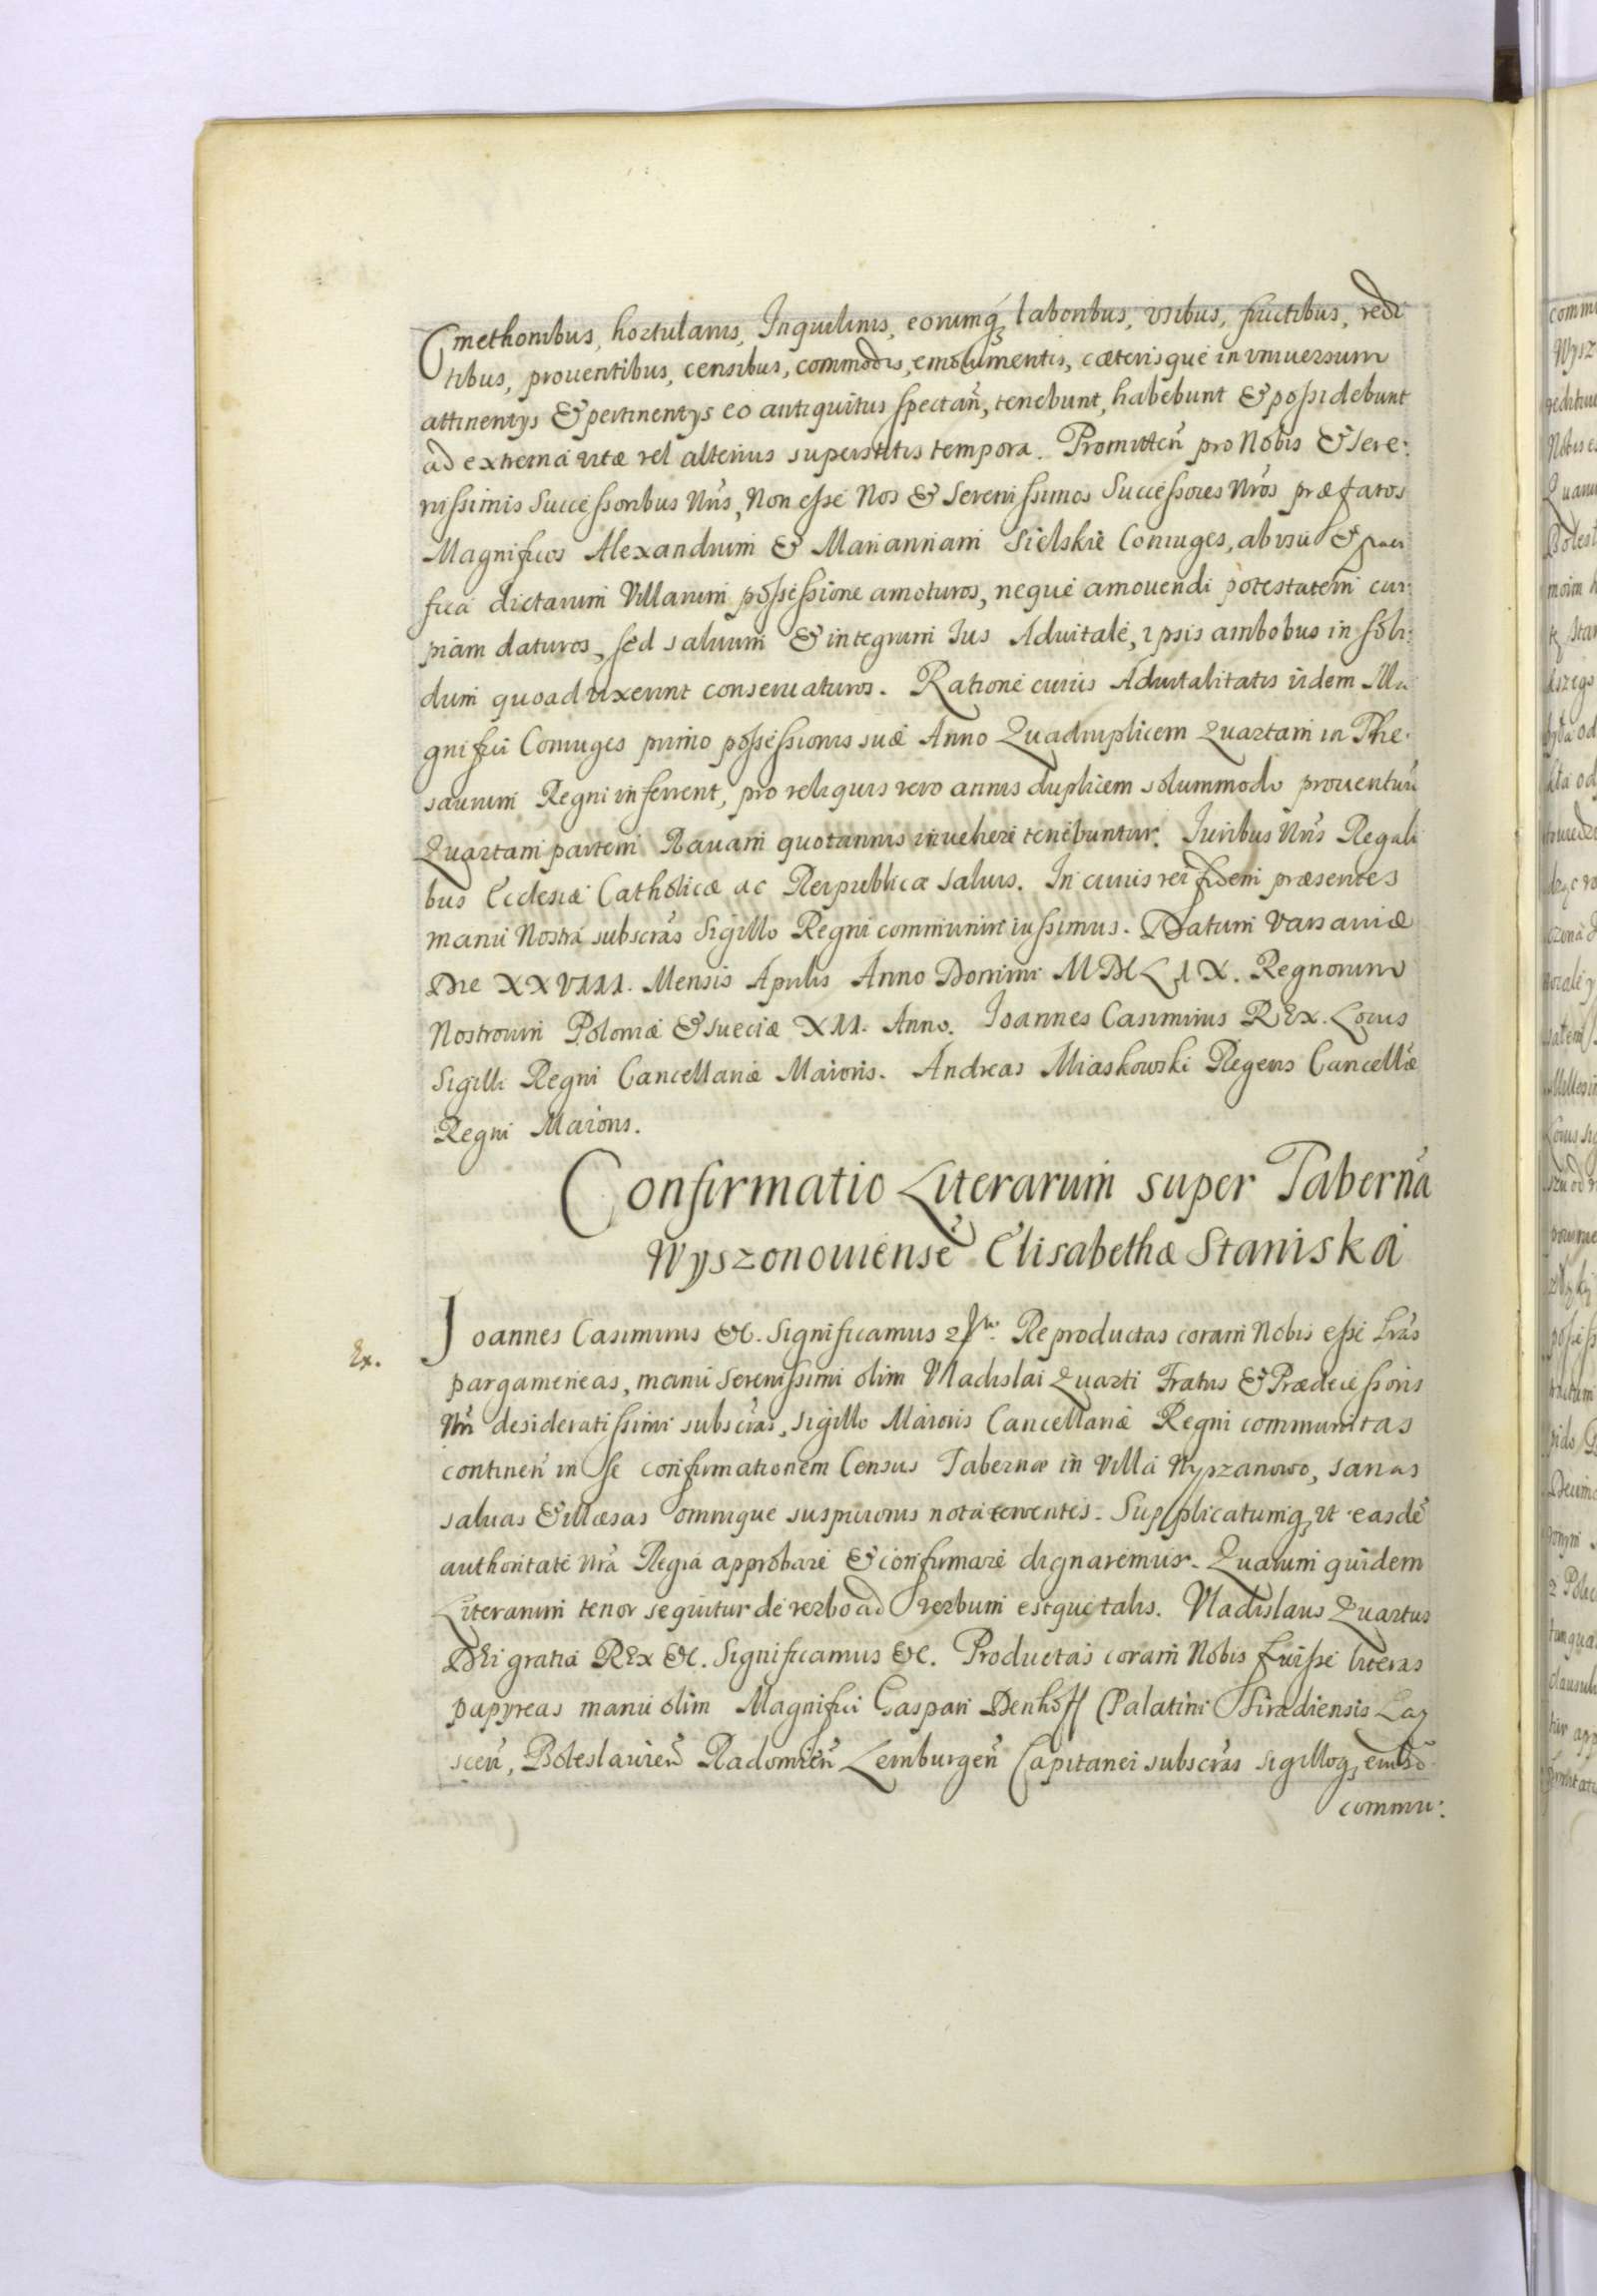 Cmethonibus, hortulanis, Inquilinis, eorumq́ laboribus, usibus, fructibus, redi
tibus, prouentibus, censibus, commodis, emolumentis, cæterisque in vniuersum
attinentys & pertinentys eo antiquitus spectań, tenebunt, habebunt & possidebunt
ad extrema vitæ vel alterius superstitis tempora. Promitteń pro Nobis & Sere:
nissimis Successoribus Nris, Non esse Nos & Serenissimos Successores Nros præfatos
Magnificos Alexandrum & Mariannam Sielskie Coniuges, ab vsu & paci
fica dictarum Villarum possessione amoturos, neque amouendi potestatem cui:
piam daturos, sed saluum & integrum Ius Aduitale, ipsis ambobus in soli:
dum quoad vixerint conseruaturos. Ratione cuius Aduitalitatis iidem Ma
gnifici Coniuges primo possessionis suæ Anno Quadruplicem Quartam in The:
saurum Regni inferrent, pro reliquis vero annis duplicem solummodo prouentuú
Quartam partem Rauam quotannis inuehere tenebuntur. Iuribus Nris Regali
bus Ecclesiæ Catholicæ ac Reipublicæ saluis. In cuius rei fidem præsentes
manu Nostra subscrás Sigillo Regni communiri iussimus. Datum Varsauiæ
Die XXVIII. Mensis Aprilis Anno Domini MDCLIX. Regnorum
Nostrorum Poloniæ & Sueciæ XII. Anno. Ioannes Casimirus REx. Locus
Sigilli Regni Cancellariæ Maioris. Andreas Miaskowski Regens Cancellæ
Regni Maioris.
Confirmatio Literarum super Taberna
Wyszonouiense Elisabethæ Staniska
Ex.
Ioannes Casimirus &c. Significamus Reproductas coram Nobis esse Lrás
pargameneas, manu Serenissimi olim Vladislai Quarti Fratris & Prædecessoris
Nri desideratissimi subscrás, sigillo Maioris Cancellariæ Regni communitas
contineń in se confirmationem Census Tabernæ in Villa Wyszanowo, sanas
saluas & illæsas omnique suspicionis nota carentes. Supplicatumq́ vt easde
authoritate Nra Regia approbare & confirmare dignaremur. Quarum quidem
Literarum tenor sequitur de verbo ad verbum estque talis. Vladislaus Quartus
DEi gratia REx &c. Significamus &c. Productas coram Nobis fuisse literas
papyreas manu olim Magnifici Gaspari Denhoff Palatini Siradiensis Lay
sceń, Boleslauień Radomień Lemburgeń Capitanei subscrás sigilloq́ eiusd.
commu: